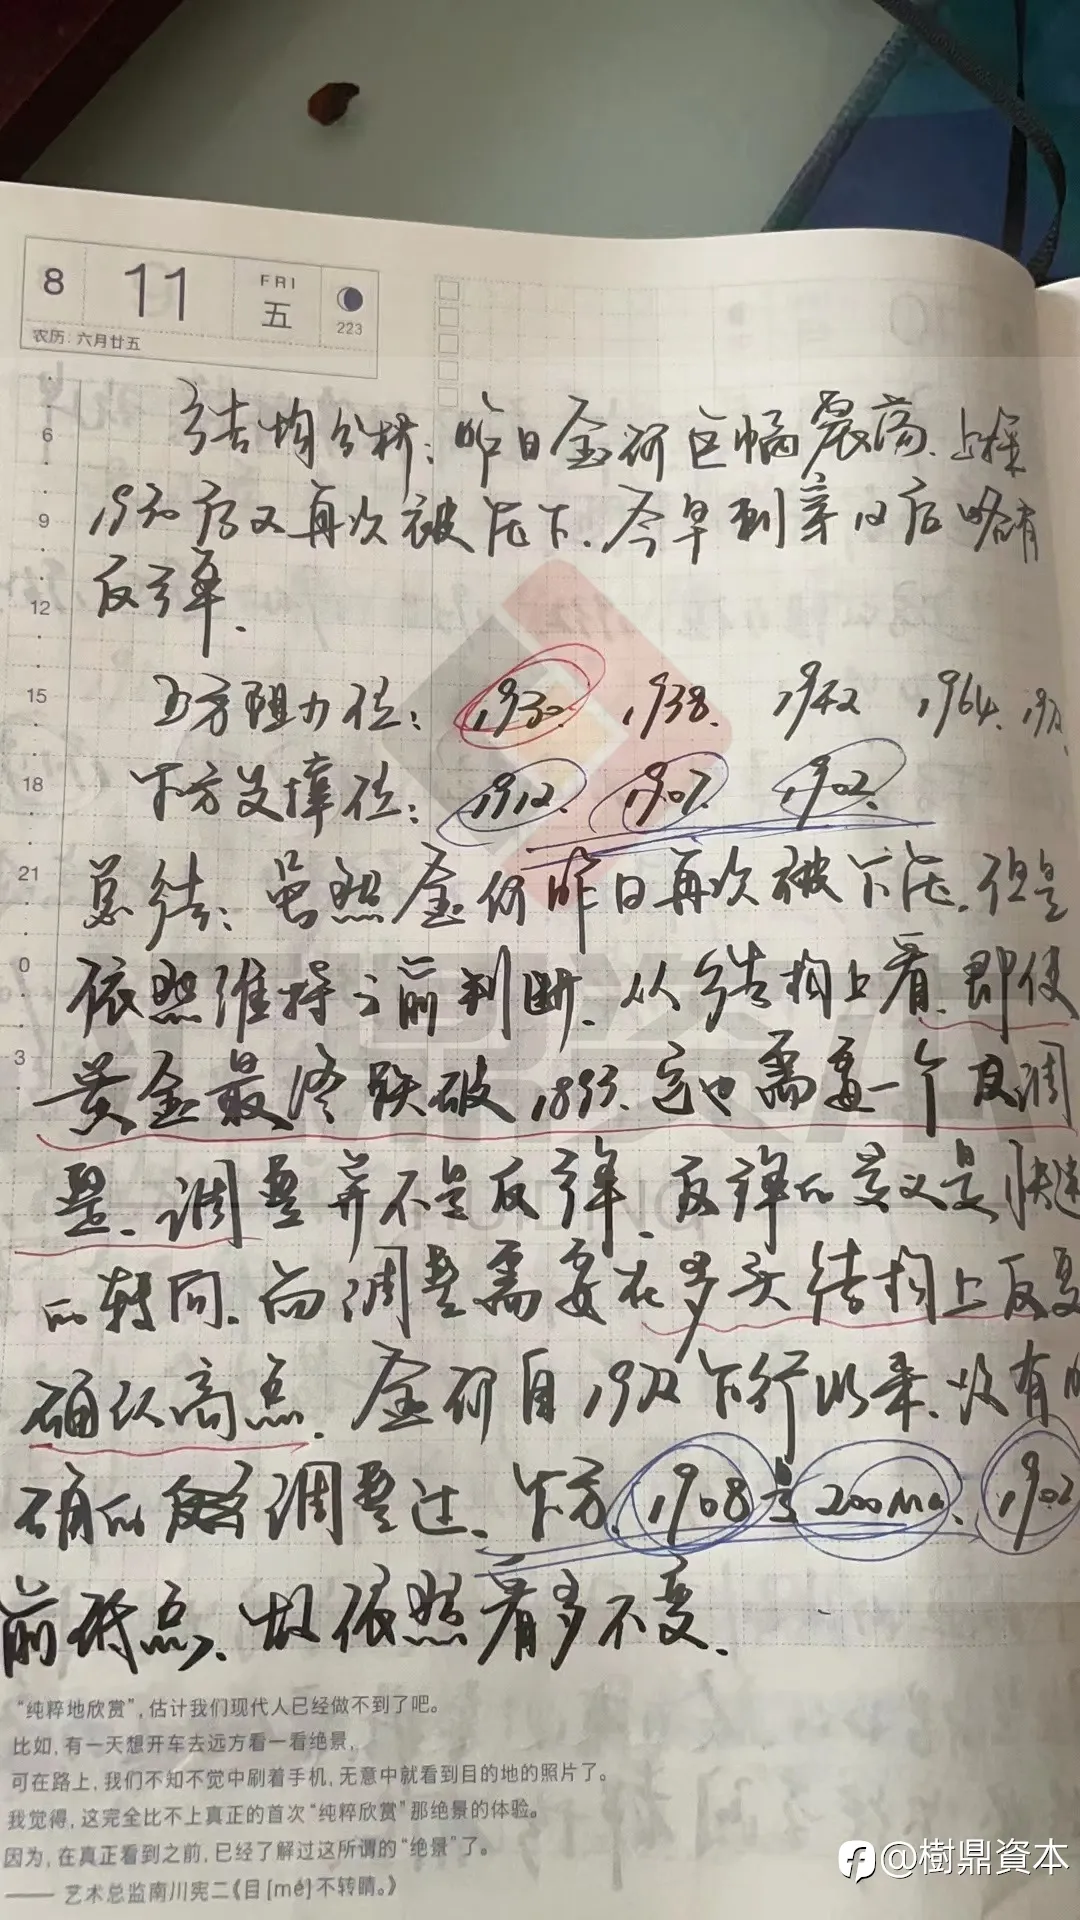 8 11 FRI 五 223
农历: 六月廿五
结构分析: 昨日金价巨幅震荡、上探
1930后又再次被压下、今早到亚盘后略有
反弹.
上方阻力位: 1930. 1938. 1942 1964.
下方支撑位: 1912. 1907. 1902.
总结: 虽然金价昨日再次被下压、但是
依照维持之前判断、从结构上看、即使
黄金最终跌破1893、它也需要一个反调
整、调整并不是反弹、反弹的意义是快速
的转向、而调整需要在多头结构上反复
确认高点. 金价自 下行以来、没有
确的 调整过、下方、1908与200ma、1902
前低点、故依照看多不变.
6
9
12
15
18
21
0
3
“纯粹地欣赏”, 估计我们现代人已经做不到了吧。
比如, 有一天想开车去远方看一看绝景,
可在路上, 我们不知不觉中刷着手机, 无意中就看到目的地的照片了。
我觉得, 这完全比不上真正的首次“纯粹欣赏”那绝景的体验。
因为, 在真正看到之前, 已经了解过这所谓的“绝景”了。
—— 艺术总监南川宪二《目[mé]不转睛。》
@樹鼎資本